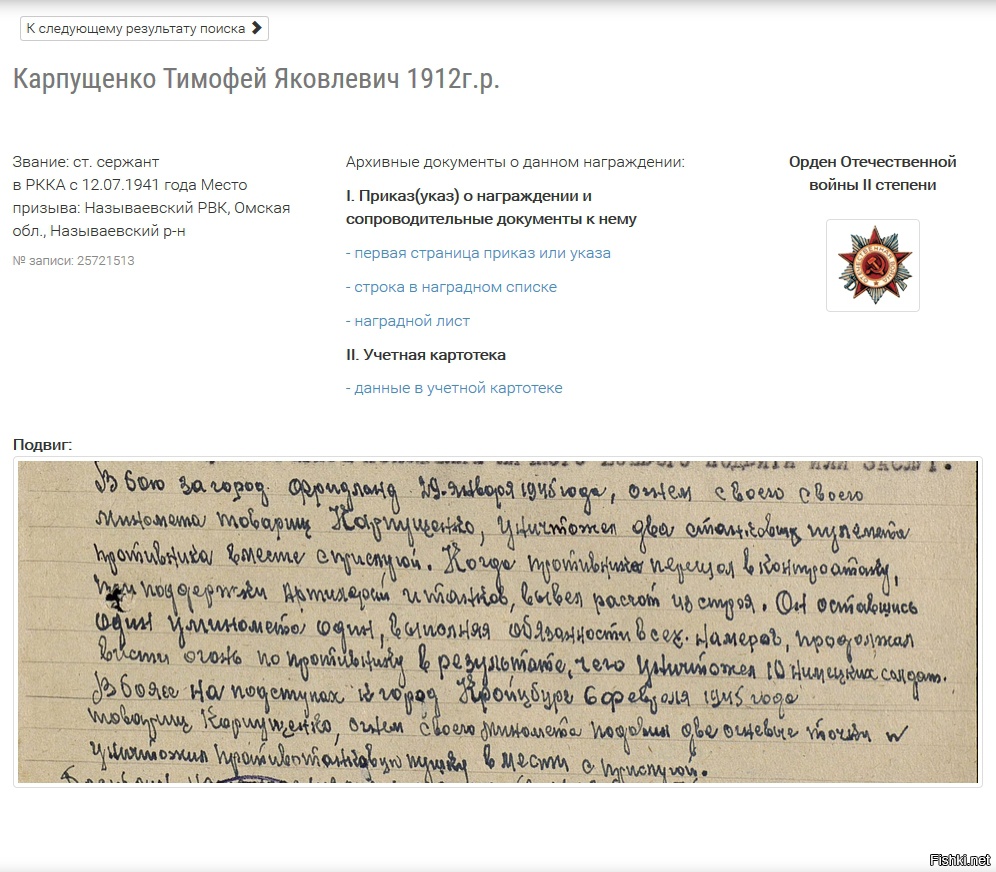 К следующему результату поиска
Карпущенко Тимофей Яковлевич 1912г.р.
Звание: ст. сержант
в РККА с 12.07.1941 года Место
призыва: Называевский РВК, Омская
обл., Называевский р-н
№ записи: 25721513
Архивные документы о данном награждении:
I. Приказ(указ) о награждении и
сопроводительные документы к нему
- первая страница приказ или указа
- строка в наградном списке
- наградной лист
II. Учетная картотека
- данные в учетной картотеке
Орден Отечественной
войны II степени
ОТЕЧЕСТВЕННАЯ ВОЙНА
Подвиг:
В бою за город Фридланд 29 января 1945 года, огнем своего своего
миномета товарищ Карпущенко, уничтожел два станковых пулемета
противника вместе с прислугой. Когда противник перешол в контротаку,
при поддержки Артилерии и танков, вывел расчот из строя. Он оставшись
один у миномета один, выполняя обязанности всех намеров, продолжал
висти огонь по противнику в результате, чего уничтожел 10 нимецких солдат.
В боях на подступах к город Кройцбург 6 февраля 1945 года
товарищ Карпущенко, огнем своего миномета подавил две огневые точки и
уничтожил противотанковую пушку вмести с прислугой.
Fishki.net